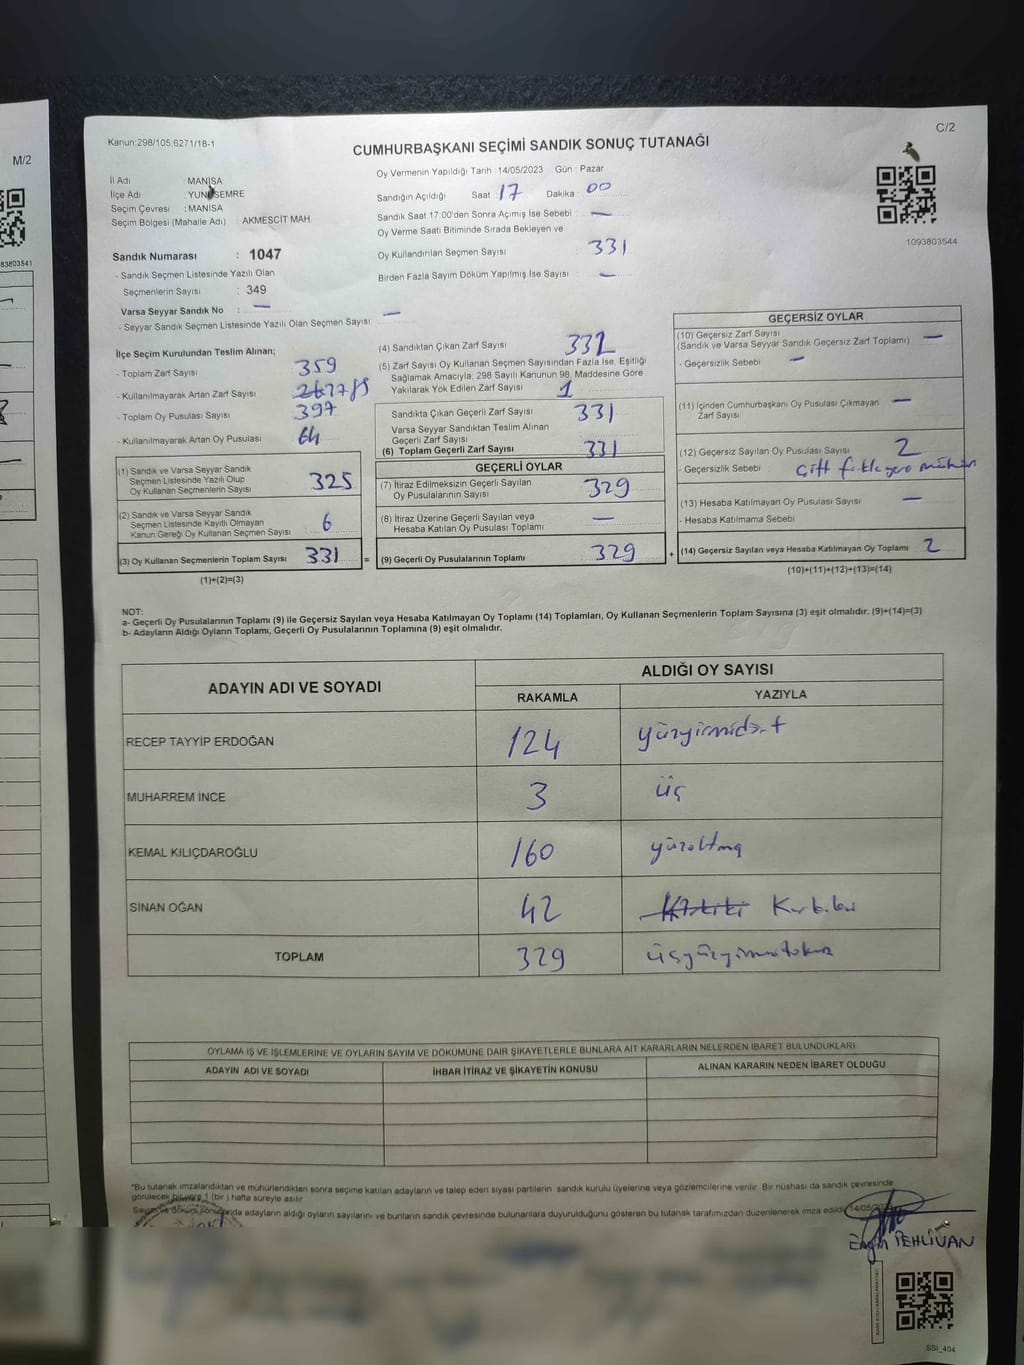 M/2
83803541
C/2
Kanun:298/105,6271/18-1
CUMHURBAŞKANI SEÇİMİ SANDIK SONUÇ TUTANAĞI
1093803544
İl Adı : MANİSA
İlçe Adı : YUNUSEMRE
Seçim Çevresi : MANİSA
Seçim Bölgesi (Mahalle Adı) AKMESCİT MAH.
Sandık Numarası : 1047
- Sandık Seçmen Listesinde Yazılı Olan
Seçmenlerin Sayısı : 349
Varsa Seyyar Sandık No : —
- Seyyar Sandık Seçmen Listesinde Yazılı Olan Seçmen Sayısı —
Oy Vermenin Yapıldığı Tarih :14/05/2023 Gün : Pazar
Sandığın Açıldığı Saat 17 Dakika : 00
Sandık Saat 17:00'den Sonra Açımış İse Sebebi : —
Oy Verme Saati Bitiminde Sırada Bekleyen ve
Oy Kullandırılan Seçmen Sayısı : 331
Birden Fazla Sayım Döküm Yapılmış İse Sayısı : —
İlçe Seçim Kurulundan Teslim Alınan;
- Toplam Zarf Sayısı : 359
- Kullanılmayarak Artan Zarf Sayısı :
- Toplam Oy Pusulası Sayısı : 397
- Kullanılmayarak Artan Oy Pusulası : 64
(1) Sandık ve Varsa Seyyar Sandık
Seçmen Listesinde Yazılı Olup
Oy Kullanan Seçmenlerin Sayısı 325
(2) Sandık ve Varsa Seyyar Sandık
Seçmen Listesinde Kayıtlı Olmayan
Kanun Gereği Oy Kullanan Seçmen Sayısı : 6
(3) Oy Kullanan Seçmenlerin Toplam Sayısı : 331 =
(1)+(2)=(3)
(4) Sandıktan Çıkan Zarf Sayısı : 332
(5) Zarf Sayısı Oy Kullanan Seçmen Sayısından Fazla İse, Eşitliği
Sağlamak Amacıyla; 298 Sayılı Kanunun 98. Maddesine Göre
Yakılarak Yok Edilen Zarf Sayısı : 1
Sandıkta Çıkan Geçerli Zarf Sayısı : 331
Varsa Seyyar Sandıktan Teslim Alınan
Geçerli Zarf Sayısı
(6) Toplam Geçerli Zarf Sayısı : 331
GEÇERLİ OYLAR
(7) İtiraz Edilmeksizin Geçerli Sayılan
Oy Pusulalarının Sayısı : 329
(8) İtiraz Üzerine Geçerli Sayılan veya
Hesaba Katılan Oy Pusulası Toplamı : —
(9) Geçerli Oy Pusulalarının Toplamı : 329 +
GEÇERSİZ OYLAR
(10) Geçersiz Zarf Sayısı
(Sandık ve Varsa Seyyar Sandık Geçersiz Zarf Toplamı) : —
- Geçersizlik Sebebi : —
(11) İçinden Cumhurbaşkanı Oy Pusulası Çıkmayan
Zarf Sayısı : —
(12) Geçersiz Sayılan Oy Pusulası Sayısı : 2
- Geçersizlik Sebebi : Çift
(13) Hesaba Katılmayan Oy Pusulası Sayısı : —
- Hesaba Katılmama Sebebi :
(14) Geçersiz Sayılan veya Hesaba Katılmayan Oy Toplamı : 2
(10)+(11)+(12)+(13)=(14)
NOT:
a- Geçerli Oy Pusulalarının Toplamı (9) ile Geçersiz Sayılan veya Hesaba Katılmayan Oy Toplamı (14) Toplamları, Oy Kullanan Seçmenlerin Toplam Sayısına (3) eşit olmalıdır. (9)+(14)=(3)
b- Adayların Aldığı Oyların Toplamı, Geçerli Oy Pusulalarının Toplamına (9) eşit olmalıdır.
ADAYIN ADI VE SOYADI ALDIĞI OY SAYISI
RAKAMLA YAZIYLA
RECEP TAYYİP ERDOĞAN 124 yüzyirmidört
MUHARREM İNCE 3 üç
KEMAL KILIÇDAROĞLU 160 yüzaltmış
SİNAN OĞAN 42 Kırkiki Kırkiki
TOPLAM 329 üçyüzyirmidokuz
OYLAMA İŞ VE İŞLEMLERİNE VE OYLARIN SAYIM VE DÖKÜMÜNE DAİR ŞİKAYETLERLE BUNLARA AİT KARARLARIN NELERDEN İBARET BULUNDUKLARI
ADAYIN ADI VE SOYADI İHBAR İTİRAZ VE ŞİKAYETİN KONUSU ALINAN KARARIN NEDEN İBARET OLDUĞU
*Bu tutanak imzalandıktan ve mühürlendikten sonra seçime katılan adayların ve talep eden siyasi partilerin sandık kurulu üyelerine veya gözlemcilerine verilir. Bir nüshası da sandık çevresinde
görülecek bir yere 1 (bir ) hafta süreyle asılır.
Sayım ve döküm sonucunda adayların aldığı oyların sayılarını ve bunların sandık çevresinde bulunanlara duyurulduğunu gösteren bu tutanak tarafımızdan düzenlenerek imza edildi.
Engin PEHLİVAN
SSI_404